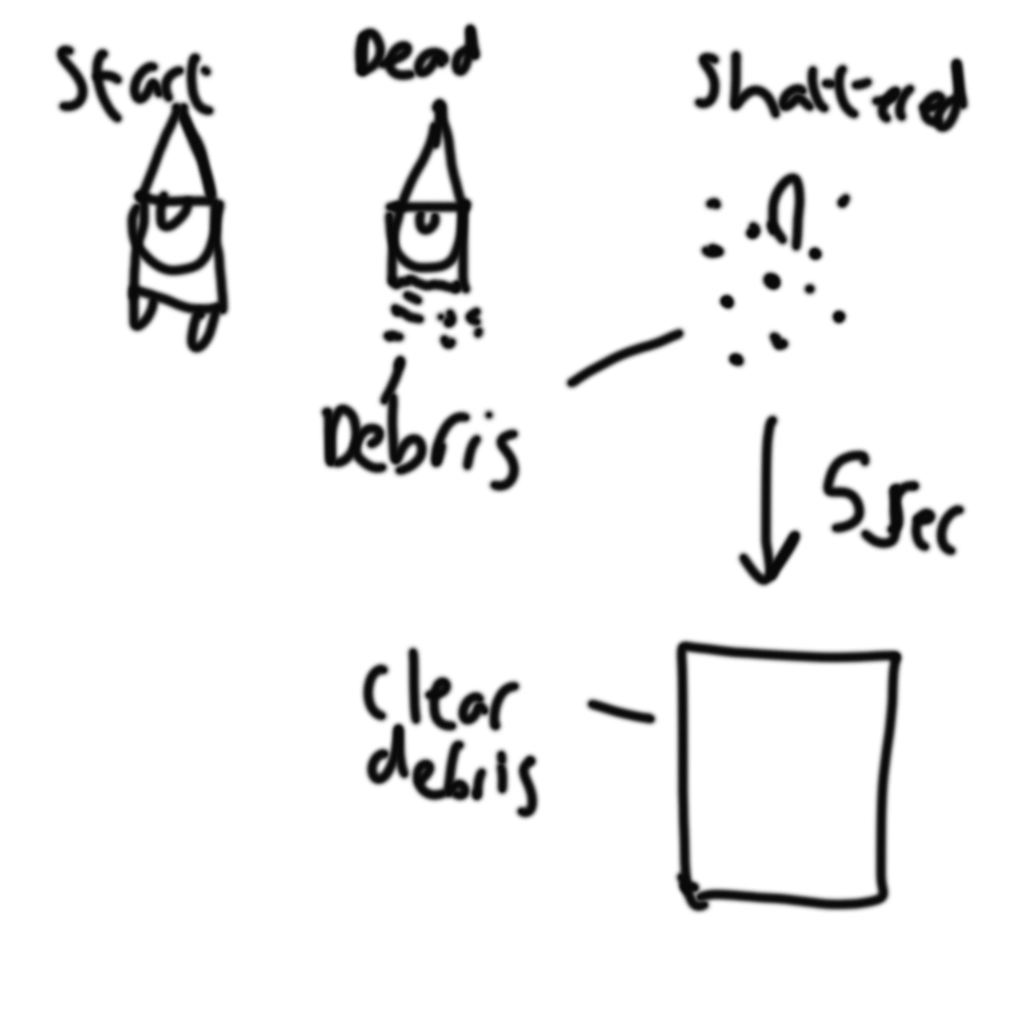 Start
Dead
Shattered
Debris
5 sec
Clear
debris